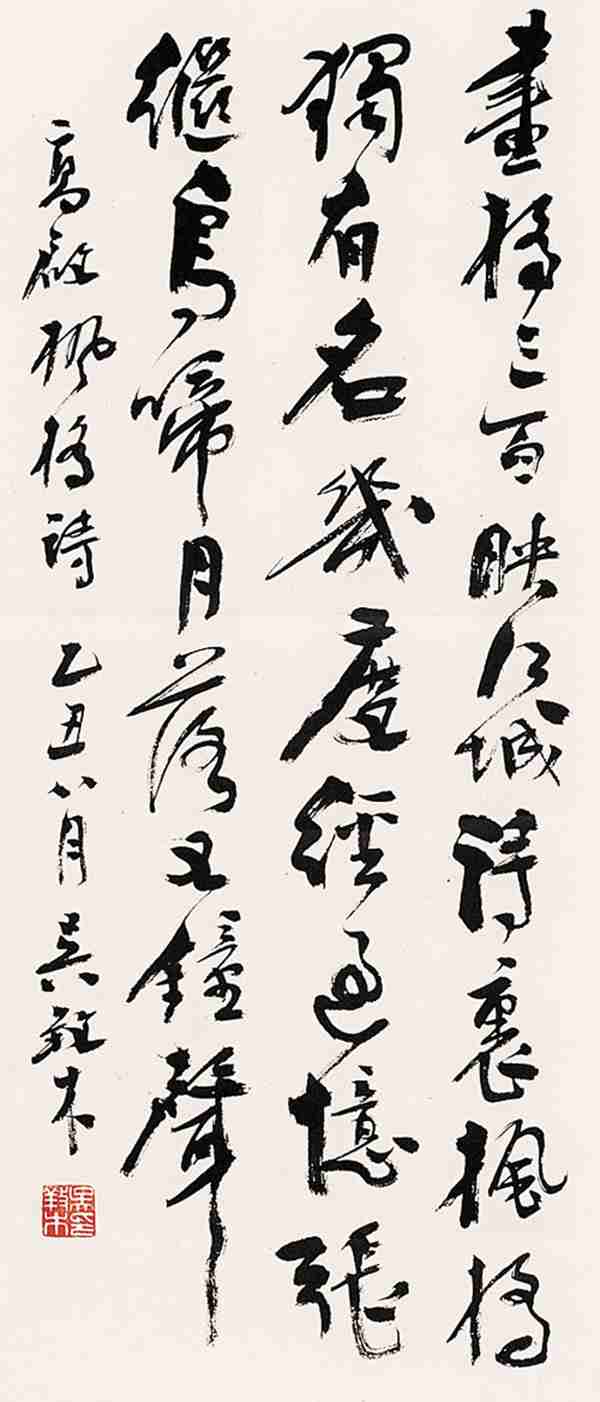 畫橋三百映江城詩裏楓橋
獨有名幾度經過憶張
繼烏啼月落又鐘聲
高啟楓橋詩 乙丑八月 吳𢼝木
吳印𢼝木